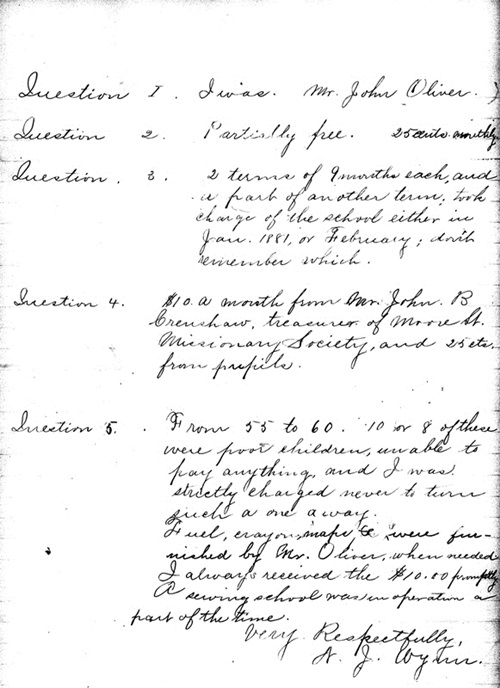 Question 1. I was. Mr. John Oliver.
Question 2. Partially free. 25 cents monthly
Question 3. 2 terms of 9 months each, and
a part of another term; took
charge of the school either in
Jan. 1881, or February; don't
remember which.
Question 4. $10. a month from Mr. John. B
Crenshaw, treasurer of Moore St.
Missionary Society, and 25 cts.
from pupils.
Question 5. From 55 to 60. 10 or 8 of these
were poor children, unable to
pay anything, and I was
strictly charged never to turn
such a one away.
Fuel, crayon, maps &c were fur-
nished by Mr. Oliver, when needed
I always received the $10.00 promptly
A sewing school was in operation a
part of the time.
Very Respectfully,
N. J. Wynn.